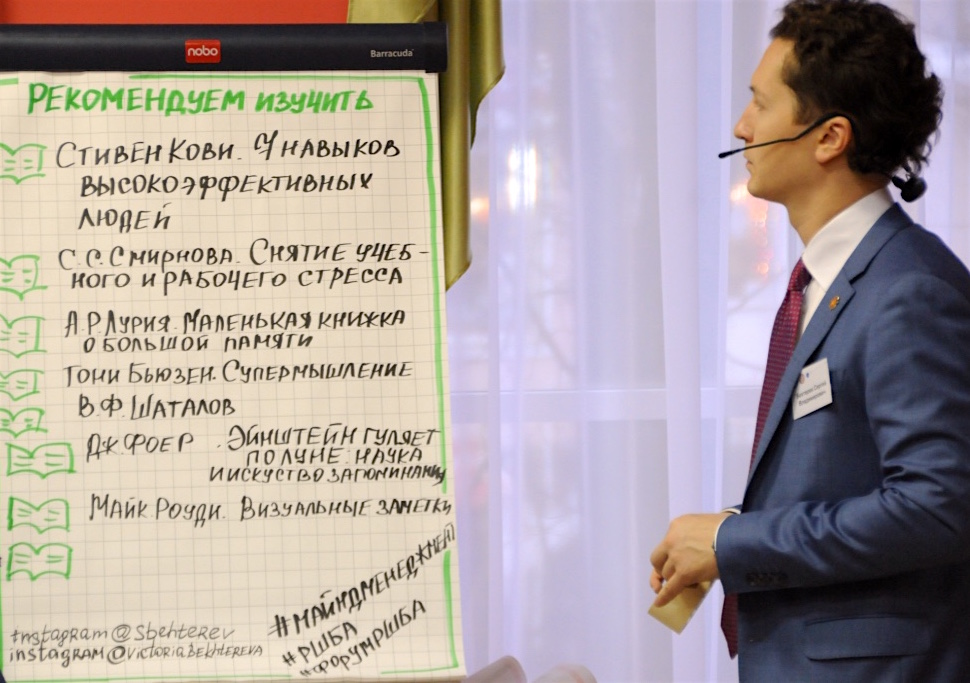 nobo
Barracuda
РЕКОМЕНДУЕМ ИЗУЧИТЬ
СТИВЕН КОВИ. 7 НАВЫКОВ
ВЫСОКОЭФФЕКТИВНЫХ
ЛЮДЕЙ
С.С. СМИРНОВА. СНЯТИЕ УЧЕБ-
НОГО И РАБОЧЕГО СТРЕССА
А.Р. ЛУРИЯ. МАЛЕНЬКАЯ КНИЖКА
О БОЛЬШОЙ ПАМЯТИ
ТОНИ БЬЮЗЕН. СУПЕРМЫШЛЕНИЕ
В.Ф. ШАТАЛОВ
ДЖ. ФОЕР. ЭЙНШТЕЙН ГУЛЯЕТ
ПО ЛУНЕ: НАУКА
И ИСКУСТВО ЗАПОМИНАНИЯ
МАЙК РОУДИ. ВИЗУАЛЬНЫЕ ЗАМЕТКИ
#МАЙНДМЕНЕДЖМЕНТ
#РШБА
#ФОРУМРШБА
instagram@Sbehterev
instagram@VICTORIABEKHTEREVA